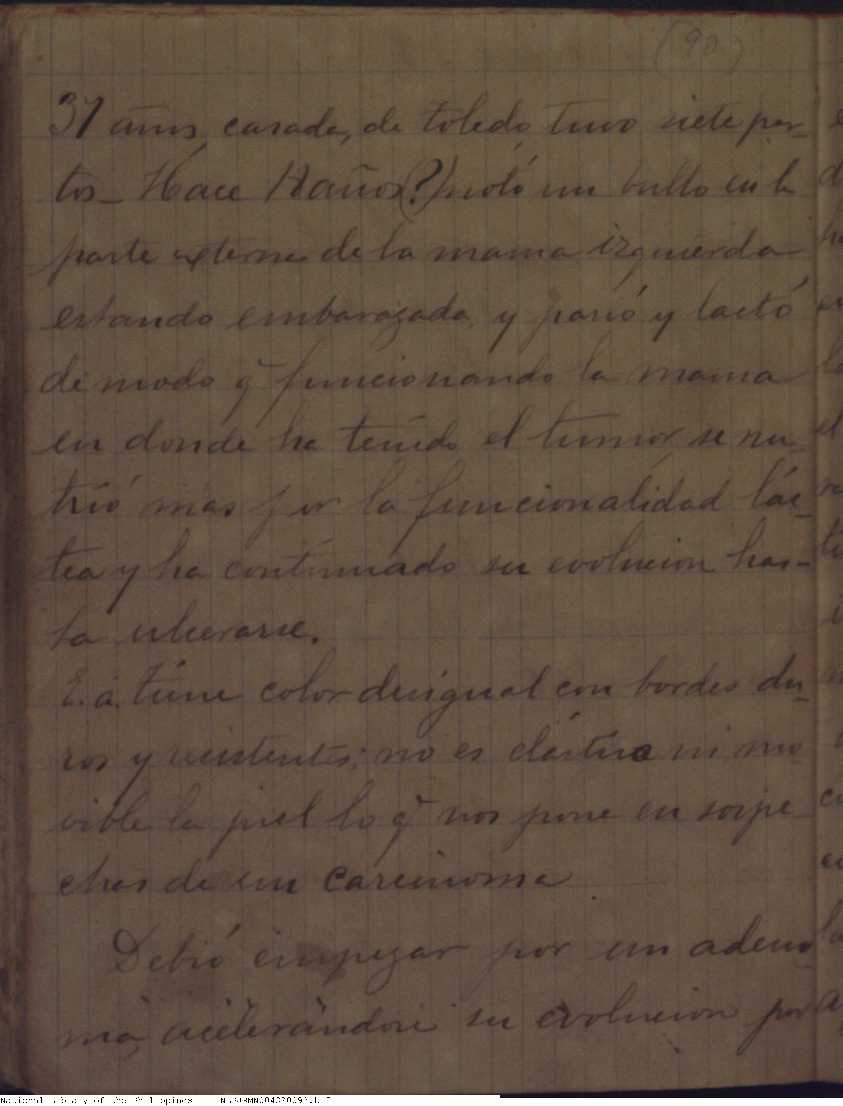 (90)
37 años, casada, de toledo, tuvo siete par-
tos_ Hace 14 años (?) notó un bulto en la
parte externa de la mama izquierda
estando embarazada, y parió y lactó
de modo q̃ funcionando la mama
en donde ha tenido el tumor, se nu-
trió mas por la funcionalidad lác-
tea y ha continuado su evolucion has-
ta ulcerarse.
E. a. tiene color desigual con bordes du-
ros y resistentes; no es elástica ni mo
vible la piel lo q̃ nos pone en sospe-
chas de un carcinoma
Debió empezar por un adeno-
ma, acelerándose su evolucion por
National Library of the Philippines